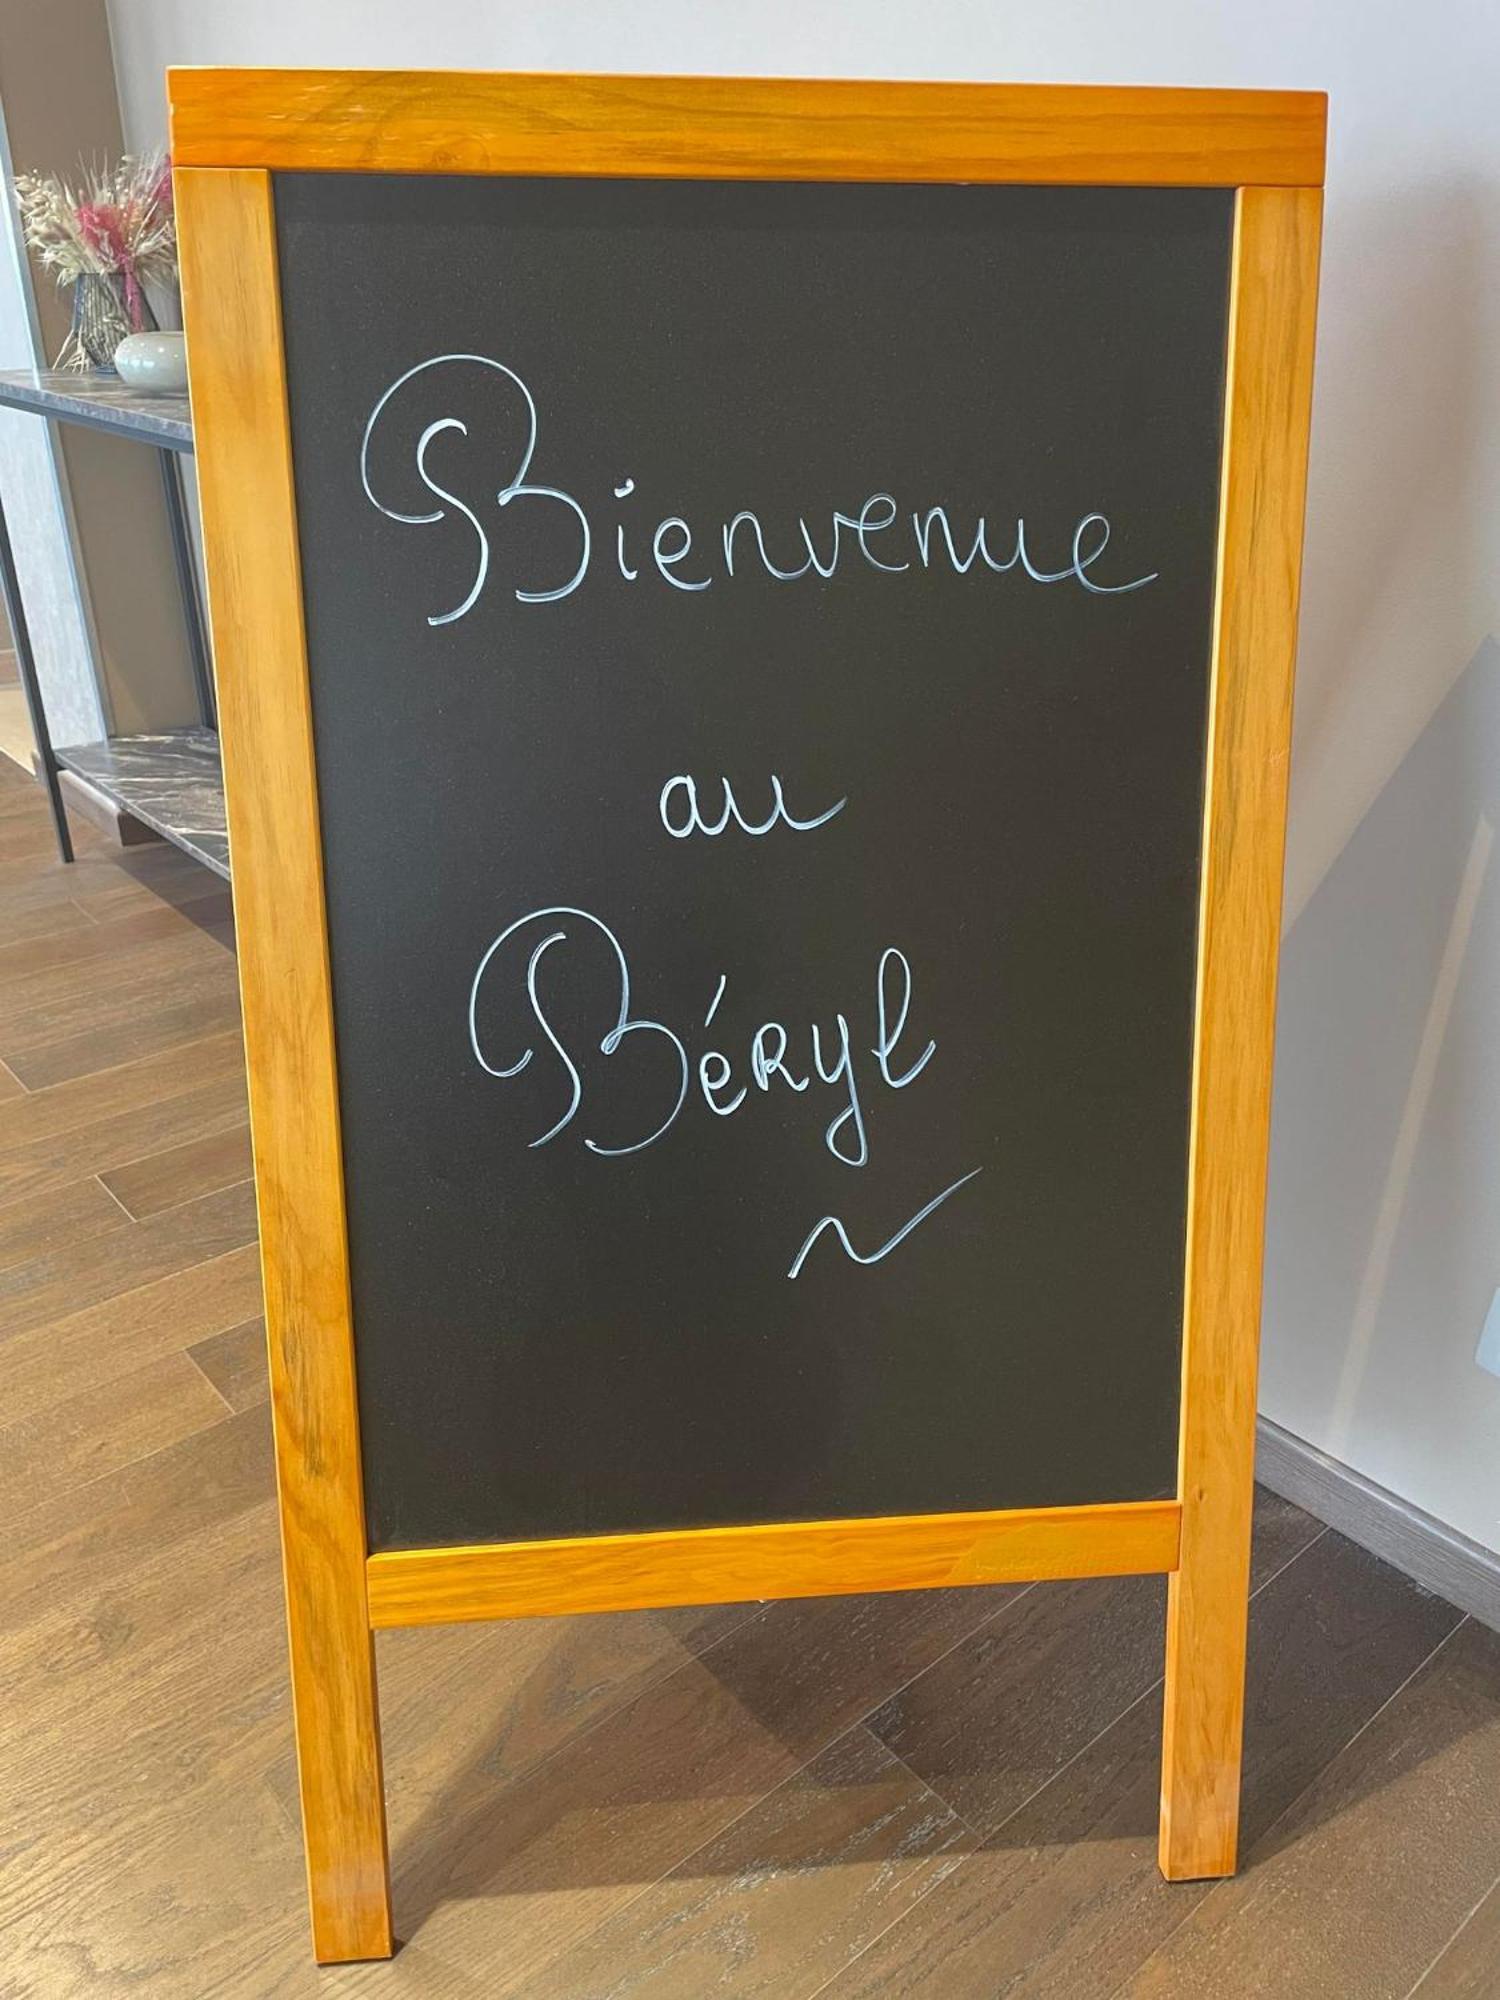 Bienvenue
au
Béryl